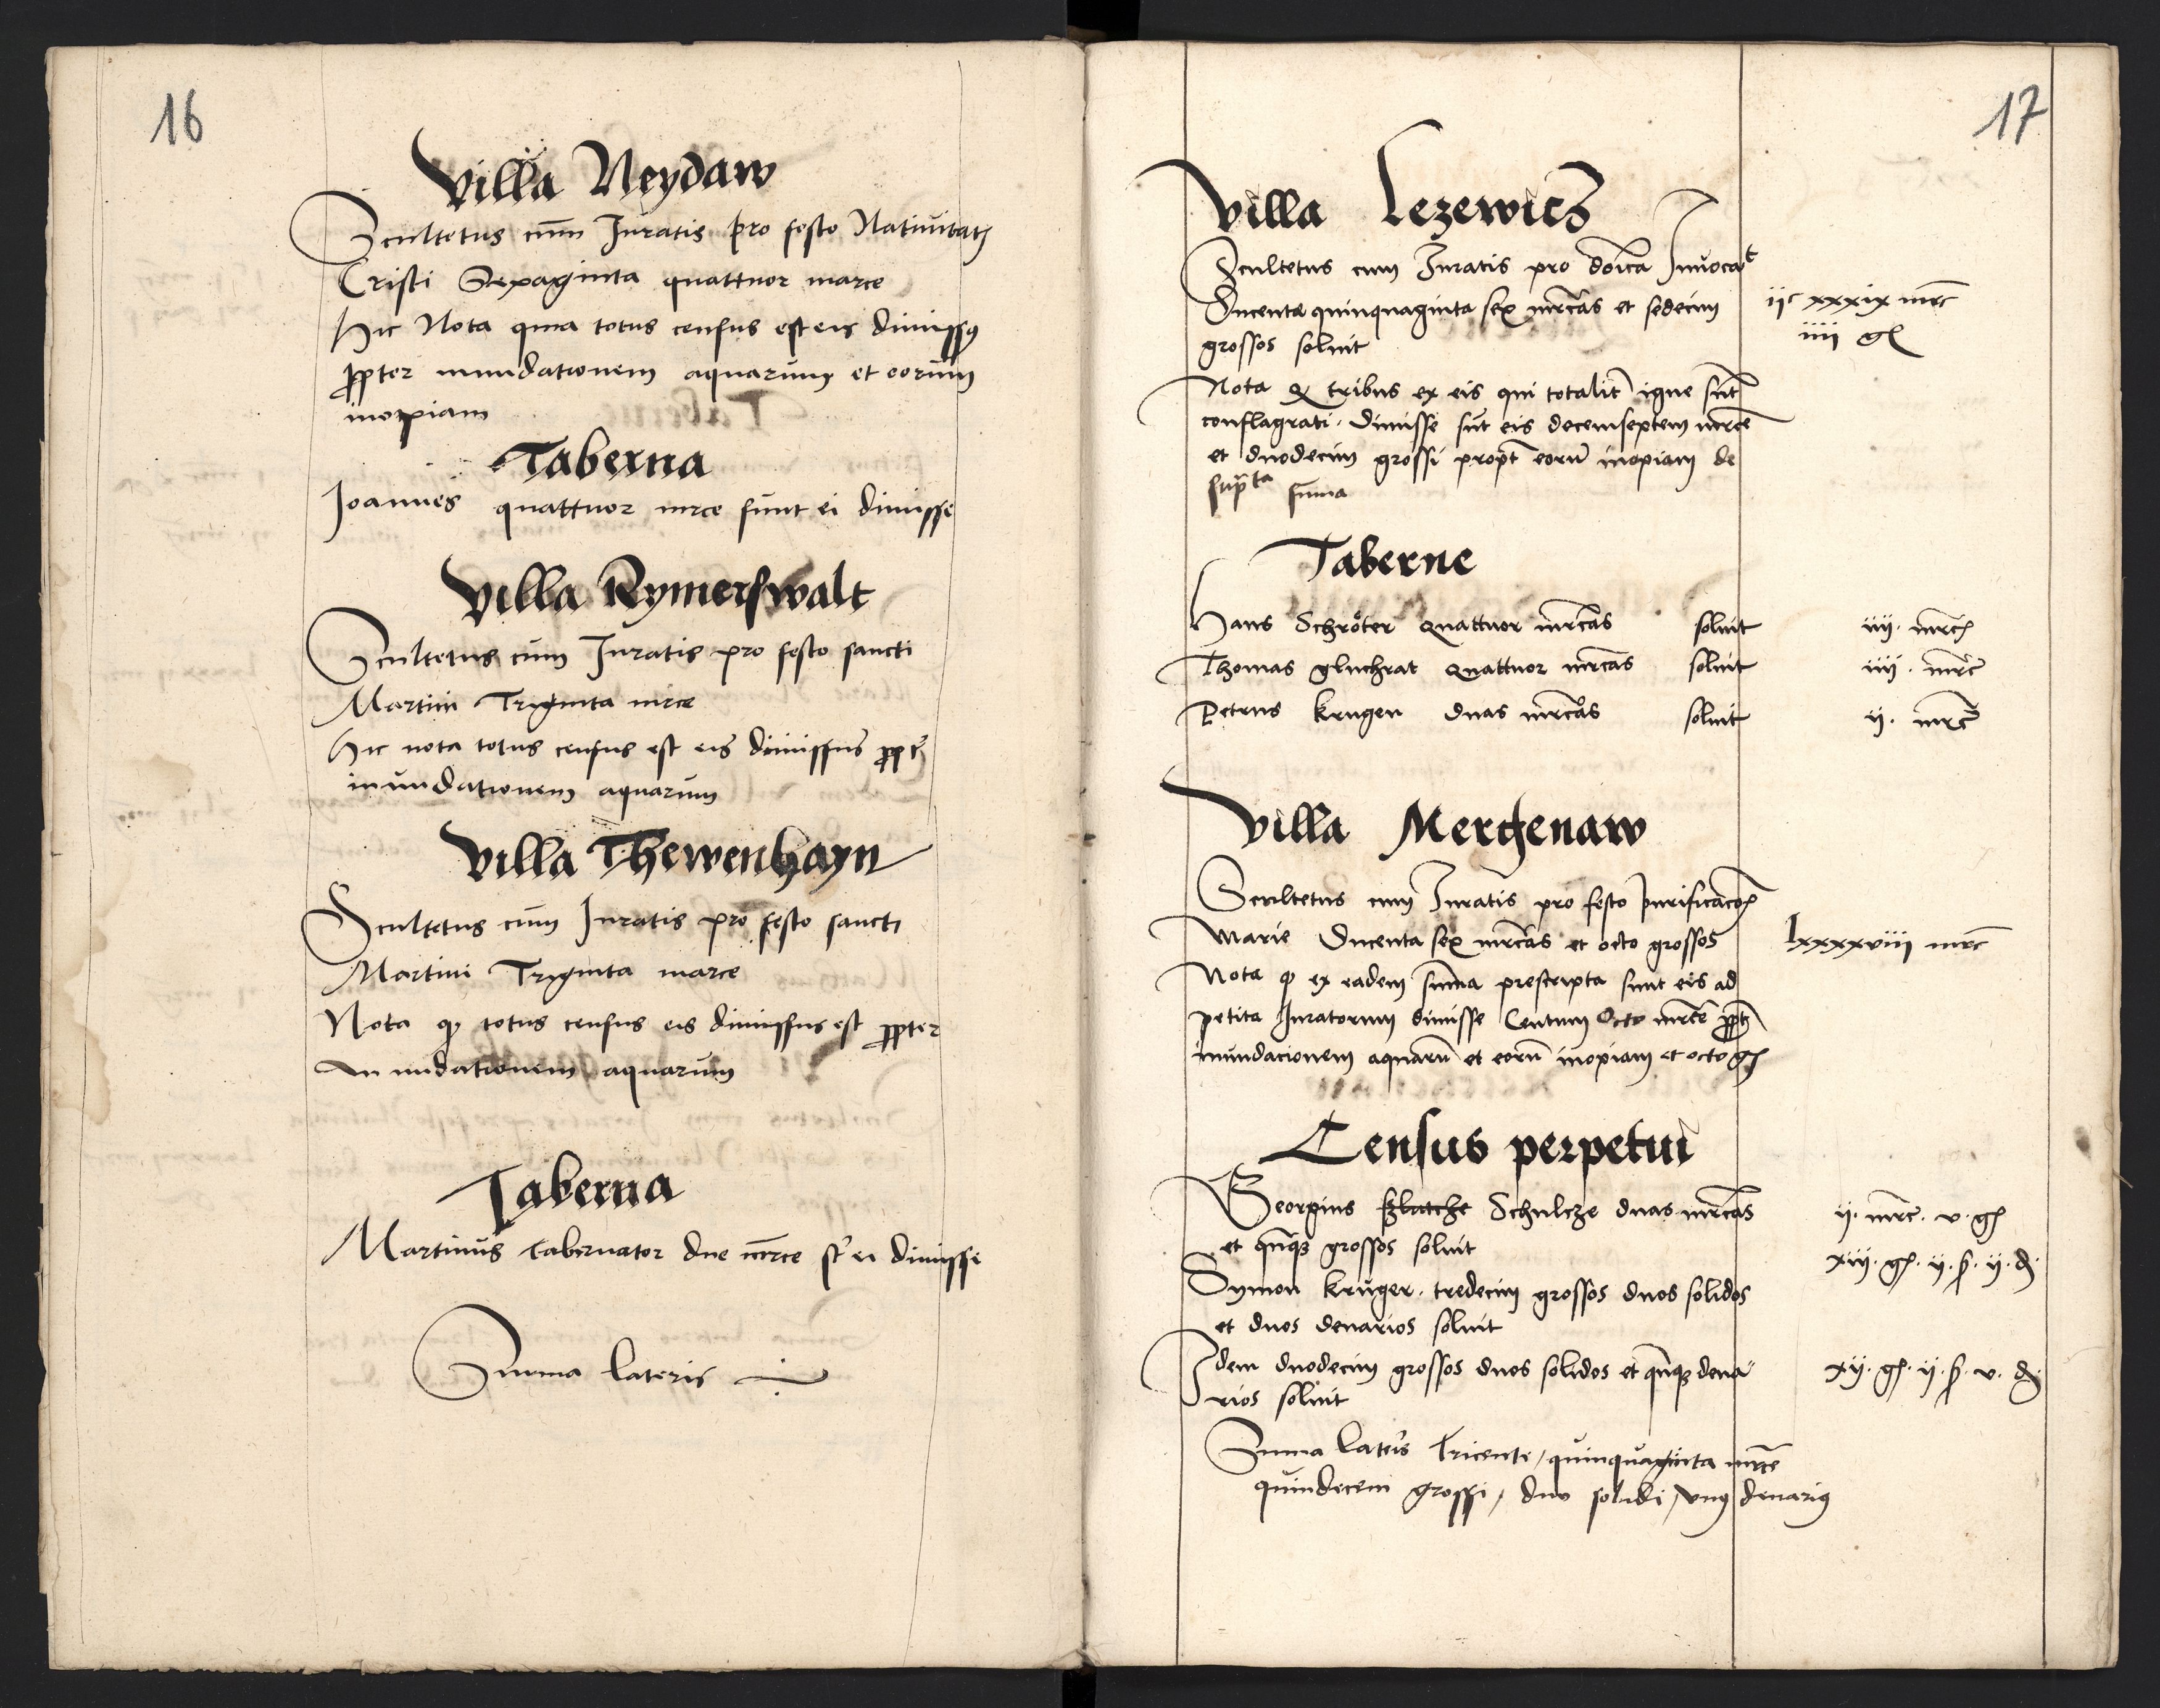 16
Villa Neydaw
Scultetus cum Juratis pro festo Nativitatis
Cristi Sexaginta quattuor marce
Hic Nota quia totus census est eis dimissus
propter inundationem aquarum et eorum
inopiam
Taberna
Joannes quattuor mrce sunt ei dimisse
Villa Rymerswalt
Scultetus cum Juratis pro festo sancti
Martini Triginta mrce
Hic nota totus census est eis dimissus propter
inundationem aquarum
Villa Thewenhayn
Scultetus cum Juratis pro festo sancti
Martini Triginta marce
Nota quod totus census eis dimissus est propter
inundationem aquarum
Taberna
Martinus tabernator due mrce st ei dimisse
Summa lateris
17
Villa Lezewitz
Scultetus cum Juratis pro doica Invocat
Ducentas quinquaginta sex mrcas et sedecim
grossos soluit
iic xxxix mrc
iiii gl
Nota quod tribus ex eis qui totalit igne sunt
conflagrati. dimisse sut eis decemseptem mrce
et duodecim grossi propt eoru inopiam de
supta suma
Taberne
Hans Schröter quattuor mrcas soluit iiij. mrc
Thomas gluchrat quattuor mrcas soluit iiij. mrc
Petrus krugen duas mrcas soluit ij. mrc
Villa Mergenaw
Scultetus cum Juratis pro festo purificacois
Marie Ducenta sex mrcas et octo grossos
lxxxxviij mrc
Nota quod ex eadem suma prescripta sunt eis ad
petita Juratorum dimisse Centum Octo mrce propt
inundacionem aquaru et eoru inopiam et octo gl
Census perpetui
Georgius Schulcze duas mrcas
et quinque grossos soluit
ij. mrc. v. gl
Symon krüger. tredecim grossos duos solidos
et duos denarios soluit
xiij. gl. ij. ß. ij. d.
Idem duodecim grossos duos solidos et quinque dena
rios soluit
xij. gl. ij. ß. v. d.
Summa lateris Tricente / quinquaginta mrce
quindecem grossi / duo solidi / unus denarius